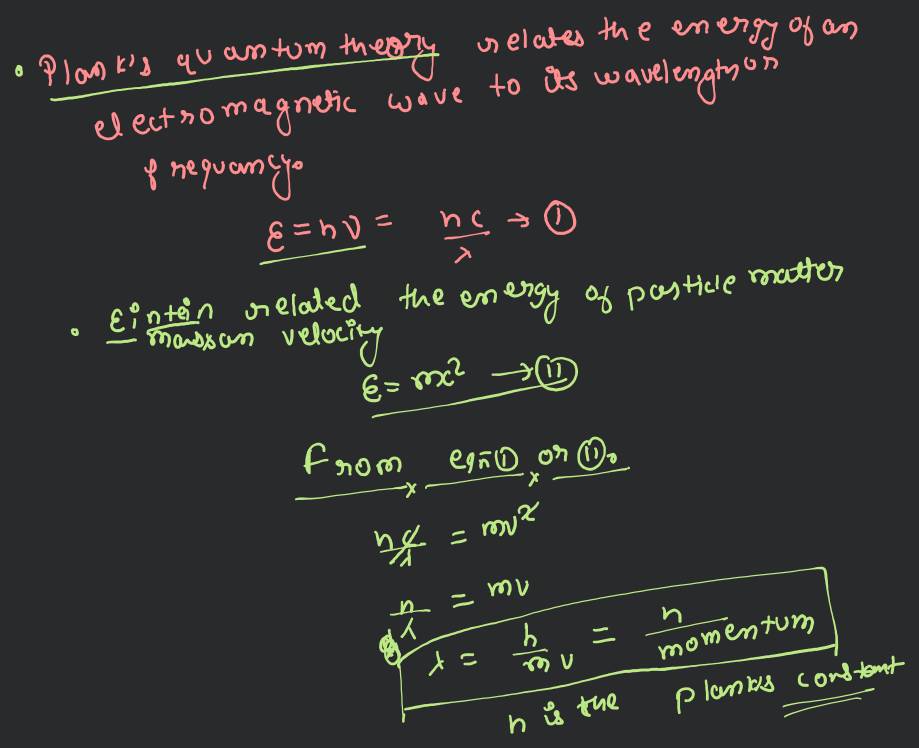 • Plank's quantum theory relates the energy of an
electromagnetic wave to its wavelength or
frequancy.
E = hν = hc/λ → (i)
• Eintein related the energy of particle matter
mass an velocity
E = mc² → (ii)
From, eqn (i), or (ii).
hc/λ = mv²
h/λ = mv
λ = h/mv = h/momentum
h is the planks constant